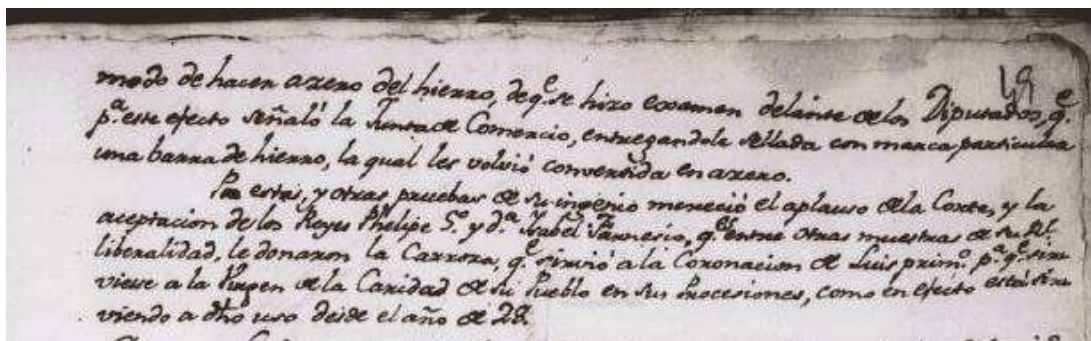 49
modo de hacer azero del hierro, de q.e se hizo examen delante de los Diputados, q.e
p.a este efecto señaló la Junta de Comercio, entregandole sellada con marca particular
una barra de hierro, la qual les volvió convertida en azero.
Por estas, y otras pruebas de su ingenio mereció el aplauso de la Corte, y la
aceptacion de los Reyes Phelipe 5.o y d.a Ysabel Farnesio, q.e entre otras muestras de su Rl.
liberalidad, le donaron la Carroza, q.e sirvió a la Coronacion de Luis prim.o p.a q.e sir-
viese a la Virgen de la Caridad de su Pueblo en sus Procesiones, como en efecto está sir-
viendo a dho uso desde el año de 28.